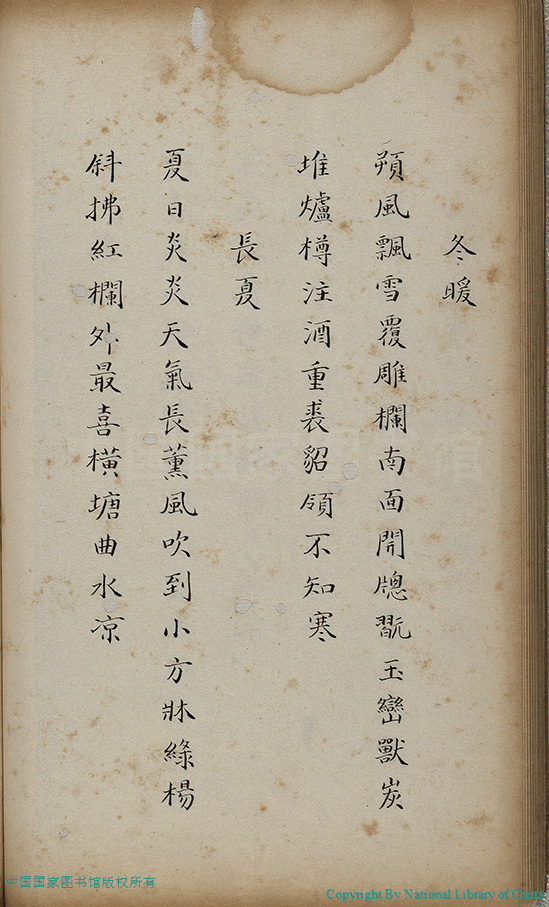 冬暖
朔風飄雪覆雕欄南面開牕翫玉巒獸炭
堆爐樽注酒重裘貂領不知寒
長夏
夏日炎炎天氣長薰風吹到小方牀綠楊
斜拂紅欄外最喜橫塘曲水凉
中国国家图书馆版权所有
Copyright By National Library of China